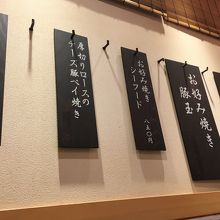 お好み焼き
豚玉
お好み焼き
シーフード
八五〇円
厚切りロースの
チーズ豚ペイ焼き